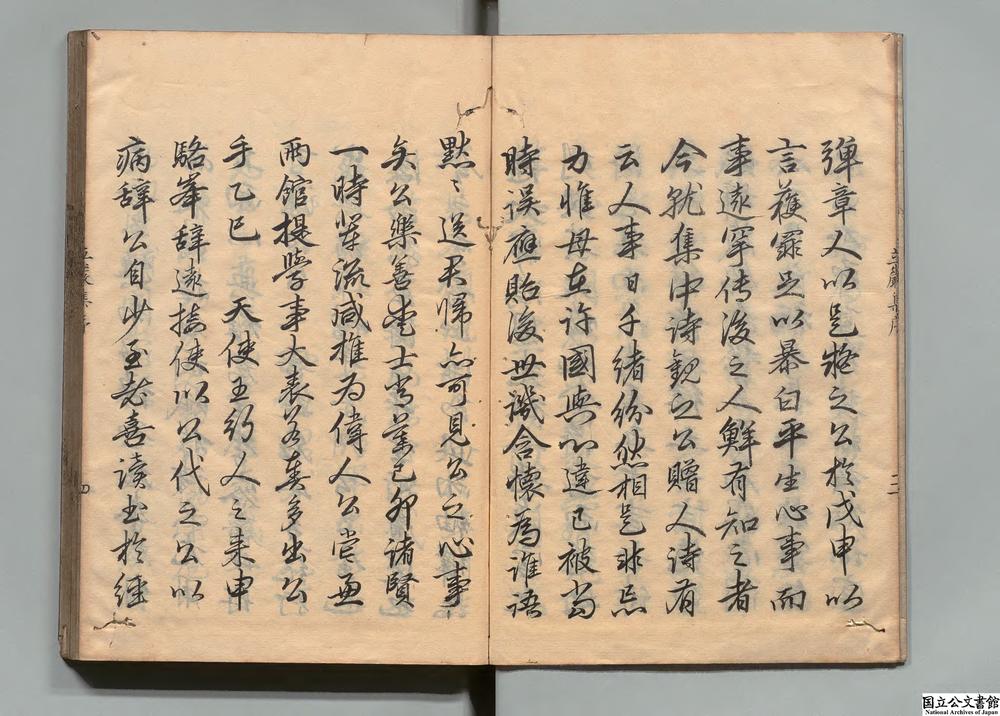 弾章人以是疑之公於戊申以
言獲罪足以暴白平生心事而
事遠罕傳後之人鮮有知之者
今就集中詩觀之公贈人詩有
云人事日千緒紛然相是非忘
力惟母在許國與心違已被當
時誤應貽後世譏含懷為誰語
黙〻送君歸亦可見公之心事
矣公樂善愛士当薦己卯諸賢
一時英流咸推為偉人公嘗兼
両館提學事大表笺奏多出公
手乙巳 天使王鶴人之来申
駱峯辞遠接使以公代之公以
病辞公自少至老喜读书於經
三
四
国立公文書館
National Archives of Japan